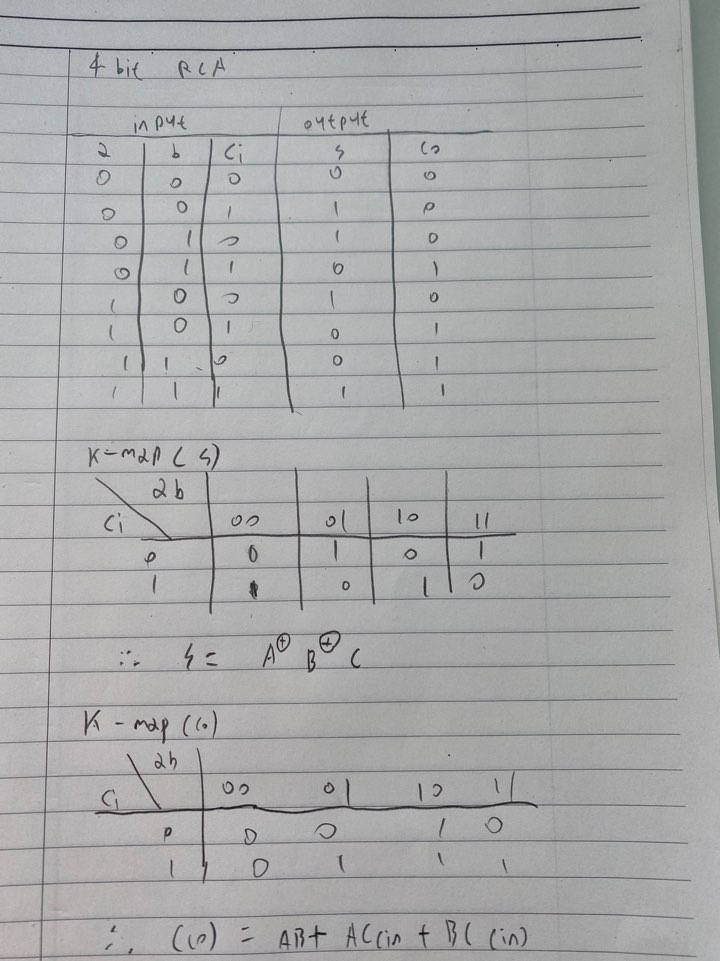 4 bit RCA
input output
a b Ci s Co
0 0 0 0 0
0 0 1 1 0
0 1 0 1 0
0 1 1 0 1
1 0 0 1 0
1 0 1 0 1
1 1 0 0 1
1 1 1 1 1
K-map (s)
ab
Ci 00 01 10 11
0 0 1 0 1
1 1 0 1 0
∴ s = A⊕ B⊕ C
K-map (Co)
ab
Ci 00 01 10 11
0 0 0 1 0
1 0 1 1 1
∴ (Co) = AB + AC(in + BC (in)